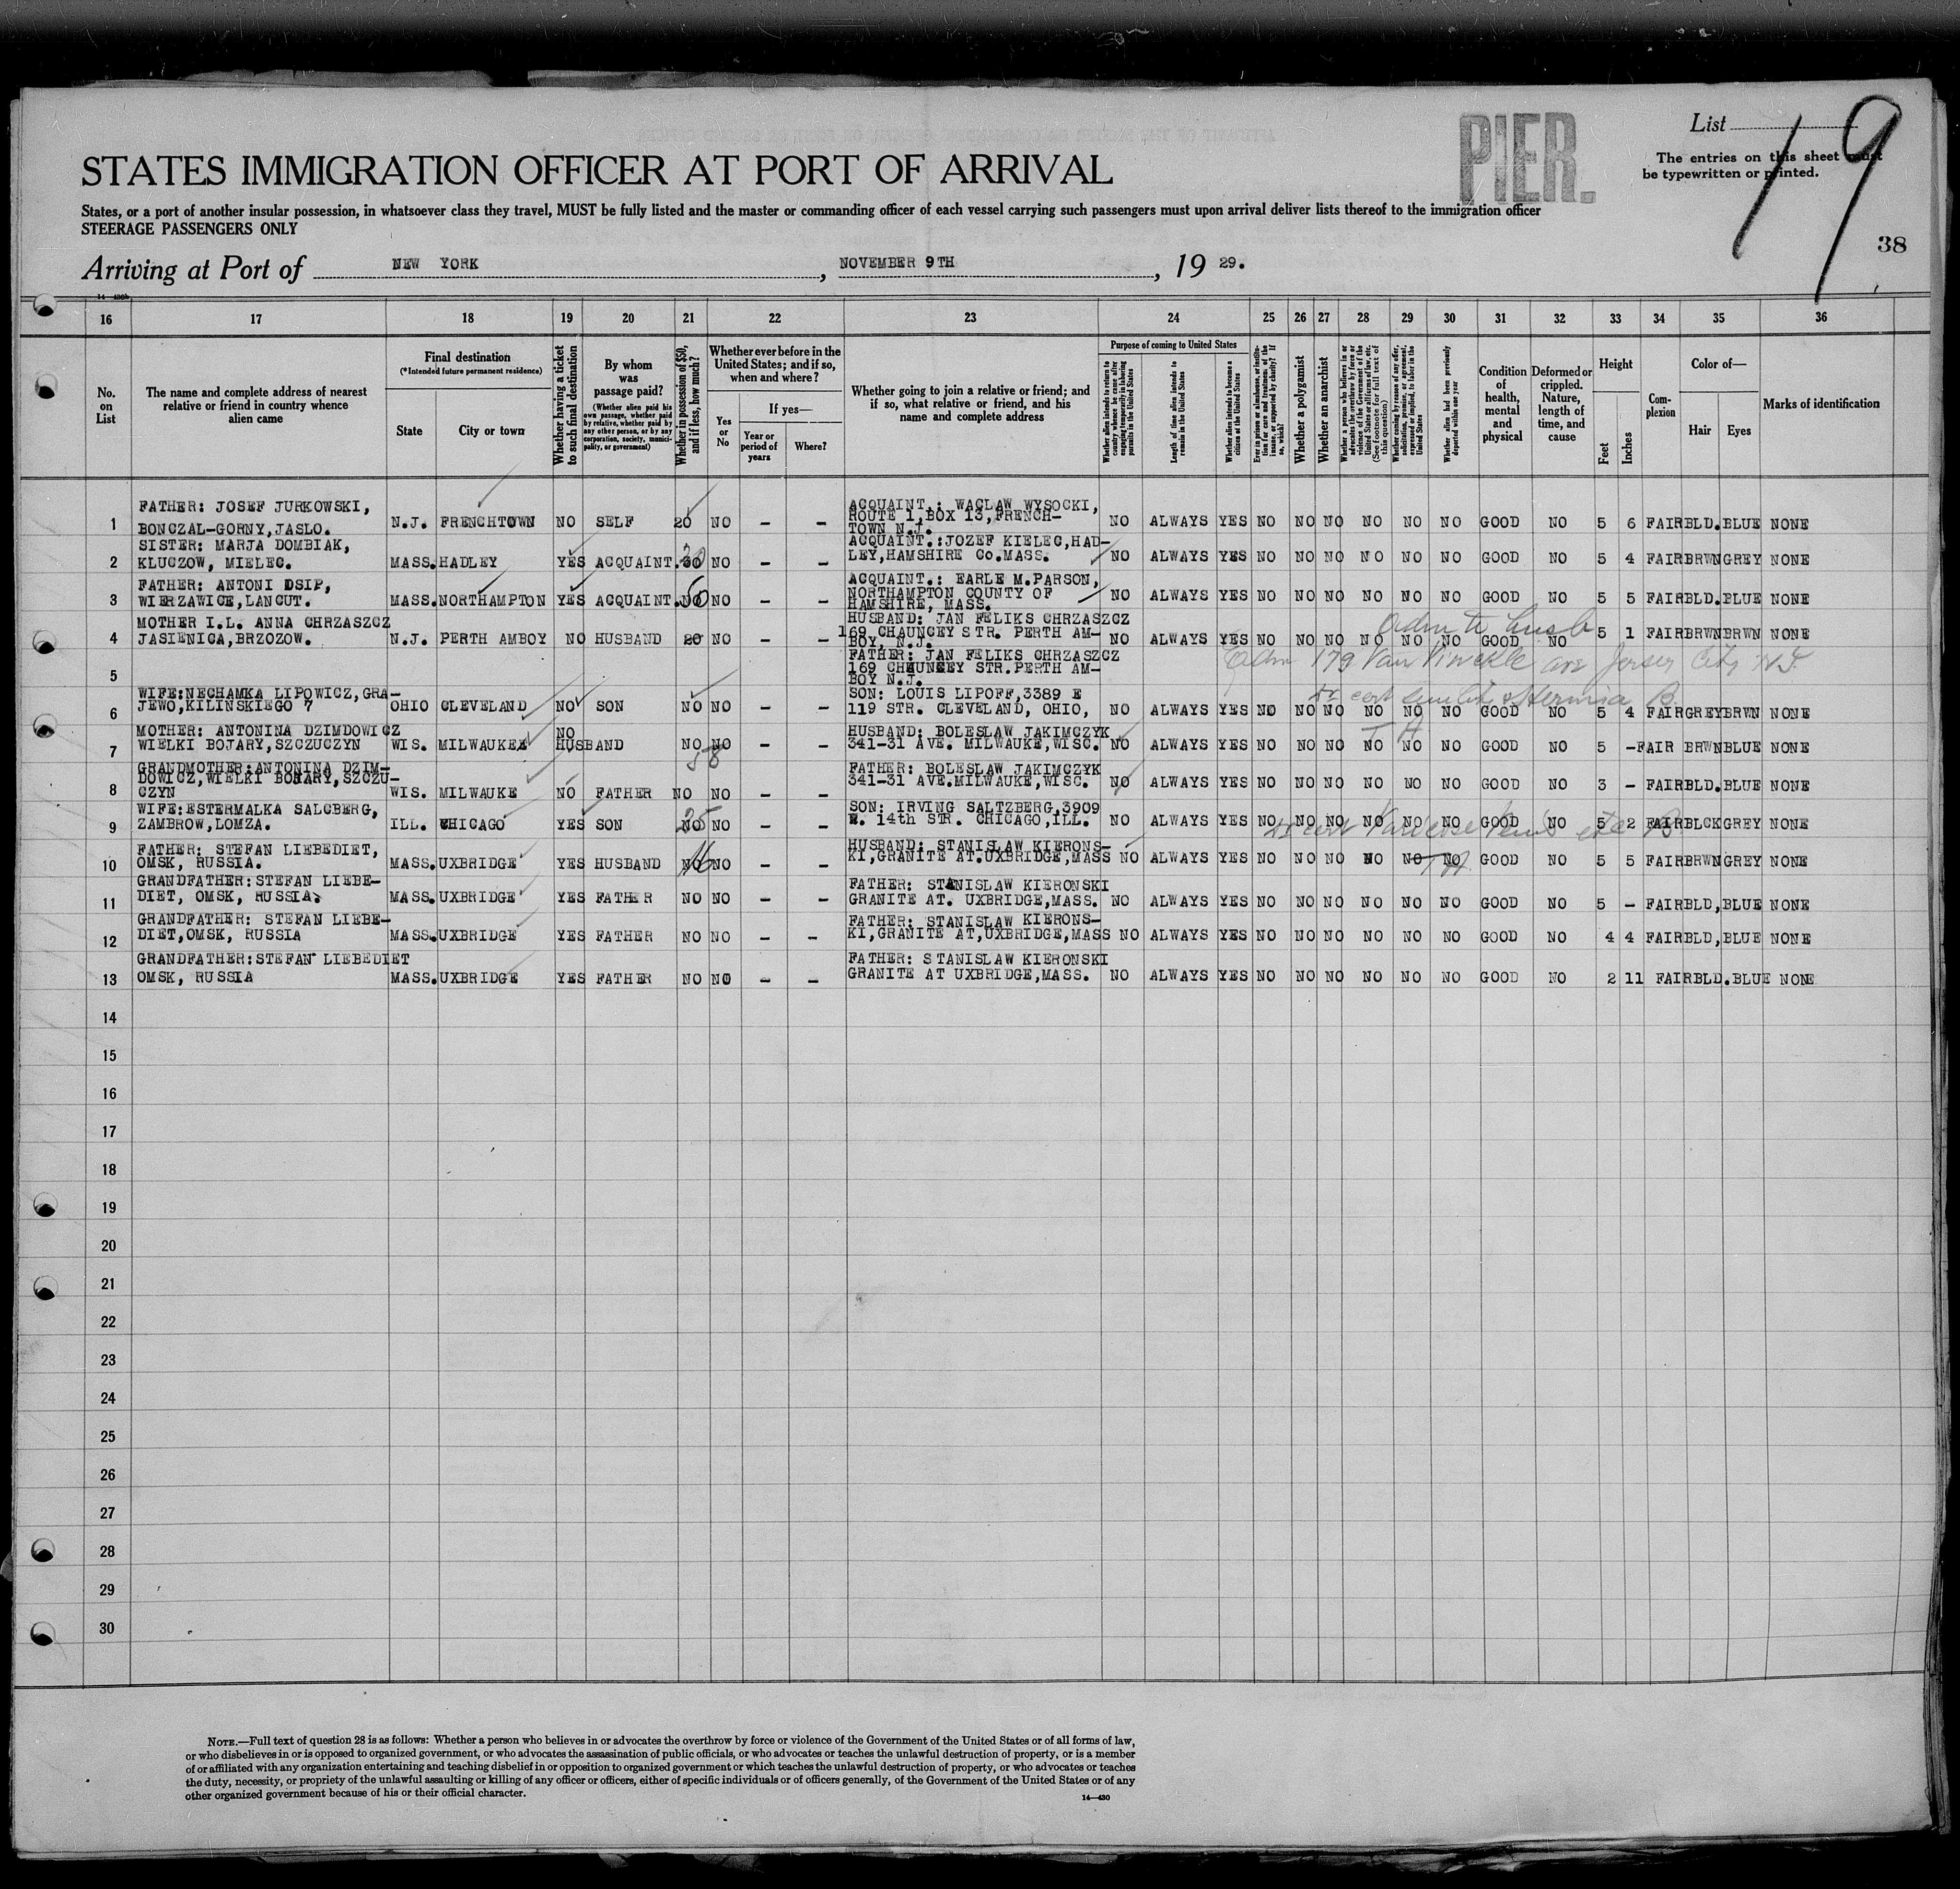 List 19
The entries on this sheet must
be typewritten or printed.
PIER.
STATES IMMIGRATION OFFICER AT PORT OF ARRIVAL
States, or a port of another insular possession, in whatsoever class they travel, MUST be fully listed and the master or commanding officer of each vessel carrying such passengers must upon arrival deliver lists thereof to the immigration officer
STEERAGE PASSENGERS ONLY
38
Arriving at Port of NEW YORK, NOVEMBER 9TH, 19 29.
14—430b
16 17 18 19 20 21 22 23 24 25 26 27 28 29 30 31 32 33 34 35 36
No. on List
The name and complete address of nearest relative or friend in country whence alien came
Final destination
(*Intended future permanent residence)
State
City or town
Whether having a ticket to such final destination
By whom was passage paid?
(Whether alien paid his own passage, whether paid by relative, whether paid by any other person, or by any corporation, society, municipality, or government)
Whether in possession of $50, and if less, how much?
Whether ever before in the United States; and if so, when and where?
Yes or No
If yes—
Year or period of years
Where?
Whether going to join a relative or friend; and if so, what relative or friend, and his name and complete address
Purpose of coming to United States
Whether alien intends to return to country whence he came after engaging temporarily in laboring pursuits in the United States
Length of time alien intends to remain in the United States
Whether alien intends to become a citizen of the United States
Ever in prison or almshouse, or institution for care and treatment of the insane, or supported by charity? If so, which?
Whether a polygamist
Whether an anarchist
Whether a person who believes in or advocates the overthrow by force or violence of the Government of the United States or all forms of law, etc. (See footnote for full text of this question)
Whether coming by reason of any offer, solicitation, promise, or agreement, expressed or implied, to labor in the United States
Whether alien had been previously deported within one year
Condition of health, mental and physical
Deformed or crippled. Nature, length of time, and cause
Height
Feet
Inches
Complexion
Color of—
Hair
Eyes
Marks of identification
1 FATHER: JOSEF JURKOWSKI, BONCZAL-GORNY, JASLO. N.J. FRENCHTOWN NO SELF 20 NO — — ACQUAINT.: WACLAW WYSOCKI, ROUTE 1, BOX 13, FRENCH-TOWN N.J. NO ALWAYS YES NO NO NO NO NO NO GOOD NO 5 6 FAIR BLD. BLUE NONE
2 SISTER: MARJA DOMBIAK, KLUCZOW, MIELEC. MASS. HADLEY YES ACQUAINT. 30 NO — — ACQUAINT.: JOZEF KIELEC, HAD-LEY, HAMSHIRE Co. MASS. NO ALWAYS YES NO NO NO NO NO NO GOOD NO 5 4 FAIR BRWN GREY NONE
3 FATHER: ANTONI DSIP, WIERZAWICE, LANCUT. MASS. NORTHAMPTON YES ACQUAINT. NO NO — — ACQUAINT.: EARLE M. PARSON, NORTHAMPTON COUNTY OF HAMSHIRE, MASS. NO ALWAYS YES NO NO NO NO NO NO GOOD NO 5 5 FAIR BLD. BLUE NONE
4 MOTHER I.L. ANNA CHRZASZCZ JASIENICA, BRZOZOW. N.J. PERTH AMBOY NO HUSBAND 20 NO — — HUSBAND: JAN FELIKS CHRZASZCZ 169 CHAUNCEY STR. PERTH AM-BOY, N.J. NO ALWAYS YES NO NO NO NO NO NO GOOD NO 5 1 FAIR BRWN BRWN NONE
Adm to husb
5 FATHER: JAN FELIKS CHRZASZCZ 169 CHAUNCEY STR. PERTH AM-BOY N.J.
Adm 179 Van Winckle ave Jersey City N.J.
6 WIFE: NECHAMKA LIPOWICZ, GRA-JEWO, KILINSKIEGO 7 OHIO CLEVELAND NO SON NO NO — — SON: LOUIS LIPOFF, 3389 E 119 STR. CLEVELAND, OHIO, NO ALWAYS YES NO NO NO NO NO NO GOOD NO 5 4 FAIR GREY BRWN NONE
7 MOTHER: ANTONINA DZIMDOWICZ WIELKI BOJARY, SZCZUCZYN WIS. MILWAUKEE NO HUSBAND NO NO — — HUSBAND: BOLESLAW JAKIMCZYK 341-31 AVE. MILWAUKE, WISC. NO ALWAYS YES NO NO NO NO NO NO GOOD NO 5 - FAIR BRWN BLUE NONE
58
8 GRANDMOTHER: ANTONINA DZIM-DOWICZ, WIELKI BOJARY, SZCZU-CZYN WIS. MILWAUKE NO FATHER NO NO — — FATHER: BOLESLAW JAKIMCZYK 341-31 AVE. MILWAUKE, WISC. NO ALWAYS YES NO NO NO NO NO NO GOOD NO 3 - FAIR BLD. BLUE NONE
9 WIFE: ESTERMALKA SALCBERG, ZAMBROW, LOMZA. ILL. CHICAGO YES SON NO 25 NO — — SON: IRVING SALTZBERG, 3909 W. 14th STR. CHICAGO, ILL. NO ALWAYS YES NO NO NO NO NO NO GOOD NO 5 2 FAIR BLCK GREY NONE
10 FATHER: STEFAN LIEBEDIET, OMSK, RUSSIA. MASS. UXBRIDGE YES HUSBAND NO 16 NO — — HUSBAND: STANISLAW KIERONS-KI, GRANITE AT. UXBRIDGE, MASS NO ALWAYS YES NO NO NO NO NO NO GOOD NO 5 5 FAIR BRWN GREY NONE
11 GRANDFATHER: STEFAN LIEBE-DIET, OMSK, RUSSIA. MASS. UXBRIDGE YES FATHER NO NO — — FATHER: STANISLAW KIERONSKI GRANITE AT. UXBRIDGE, MASS. NO ALWAYS YES NO NO NO NO NO NO GOOD NO 5 - FAIR BLD, BLUE NONE
12 GRANDFATHER: STEFAN LIEBE-DIET, OMSK, RUSSIA MASS. UXBRIDGE YES FATHER NO NO — — FATHER: STANISLAW KIERONS-KI, GRANITE AT, UXBRIDGE, MASS NO ALWAYS YES NO NO NO NO NO NO GOOD NO 4 4 FAIR BLD, BLUE NONE
13 GRANDFATHER: STEFAN LIEBEDIET OMSK, RUSSIA MASS. UXBRIDGE YES FATHER NO NO — — FATHER: STANISLAW KIERONSKI GRANITE AT UXBRIDGE, MASS. NO ALWAYS YES NO NO NO NO NO NO GOOD NO 2 11 FAIR BLD. BLUE NONE
14
15
16
17
18
19
20
21
22
23
24
25
26
27
28
29
30
NOTE.—Full text of question 28 is as follows: Whether a person who believes in or advocates the overthrow by force or violence of the Government of the United States or of all forms of law,
or who disbelieves in or is opposed to organized government, or who advocates the assassination of public officials, or who advocates or teaches the unlawful destruction of property, or is a member
of or affiliated with any organization entertaining and teaching disbelief in or opposition to organized government or which teaches the unlawful destruction of property, or who advocates or teaches
the duty, necessity, or propriety of the unlawful assaulting or killing of any officer or officers, either of specific individuals or of officers generally, of the Government of the United States or of any
other organized government because of his or their official character.
14—430